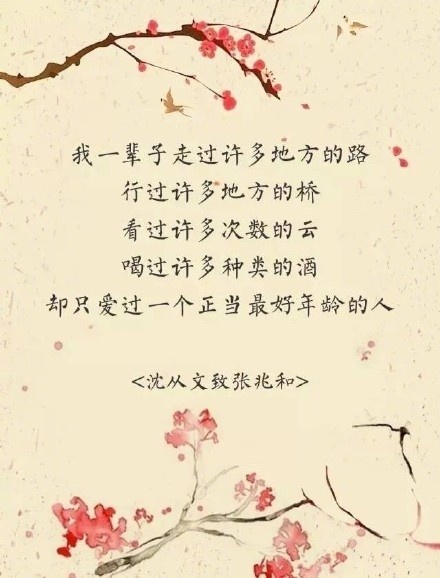 我一辈子走过许多地方的路
行过许多地方的桥
看过许多次数的云
喝过许多种类的酒
却只爱过一个正当最好年龄的人
<沈从文致张兆和>